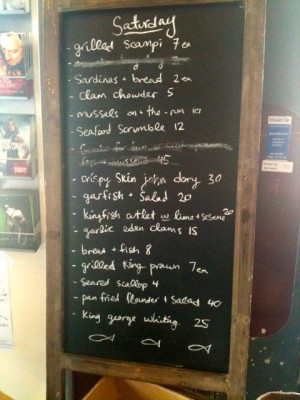 Saturday
- grilled Scampi 7 ea
- Sardines + bread 2 ea
- Clam chowder 5
- mussels on-the-run 10
- Seafood Scrumble 12
45
- crispy Skin john dory 30
- garfish + Salad 20
- kingfish cutlet w lime + sesame 20
- garlic eden clams 15
- bread + fish 8
- grilled King prawn 7 ea
- Seared scallop 4
- pan fried flounder + Salad 40
- King george whiting 25